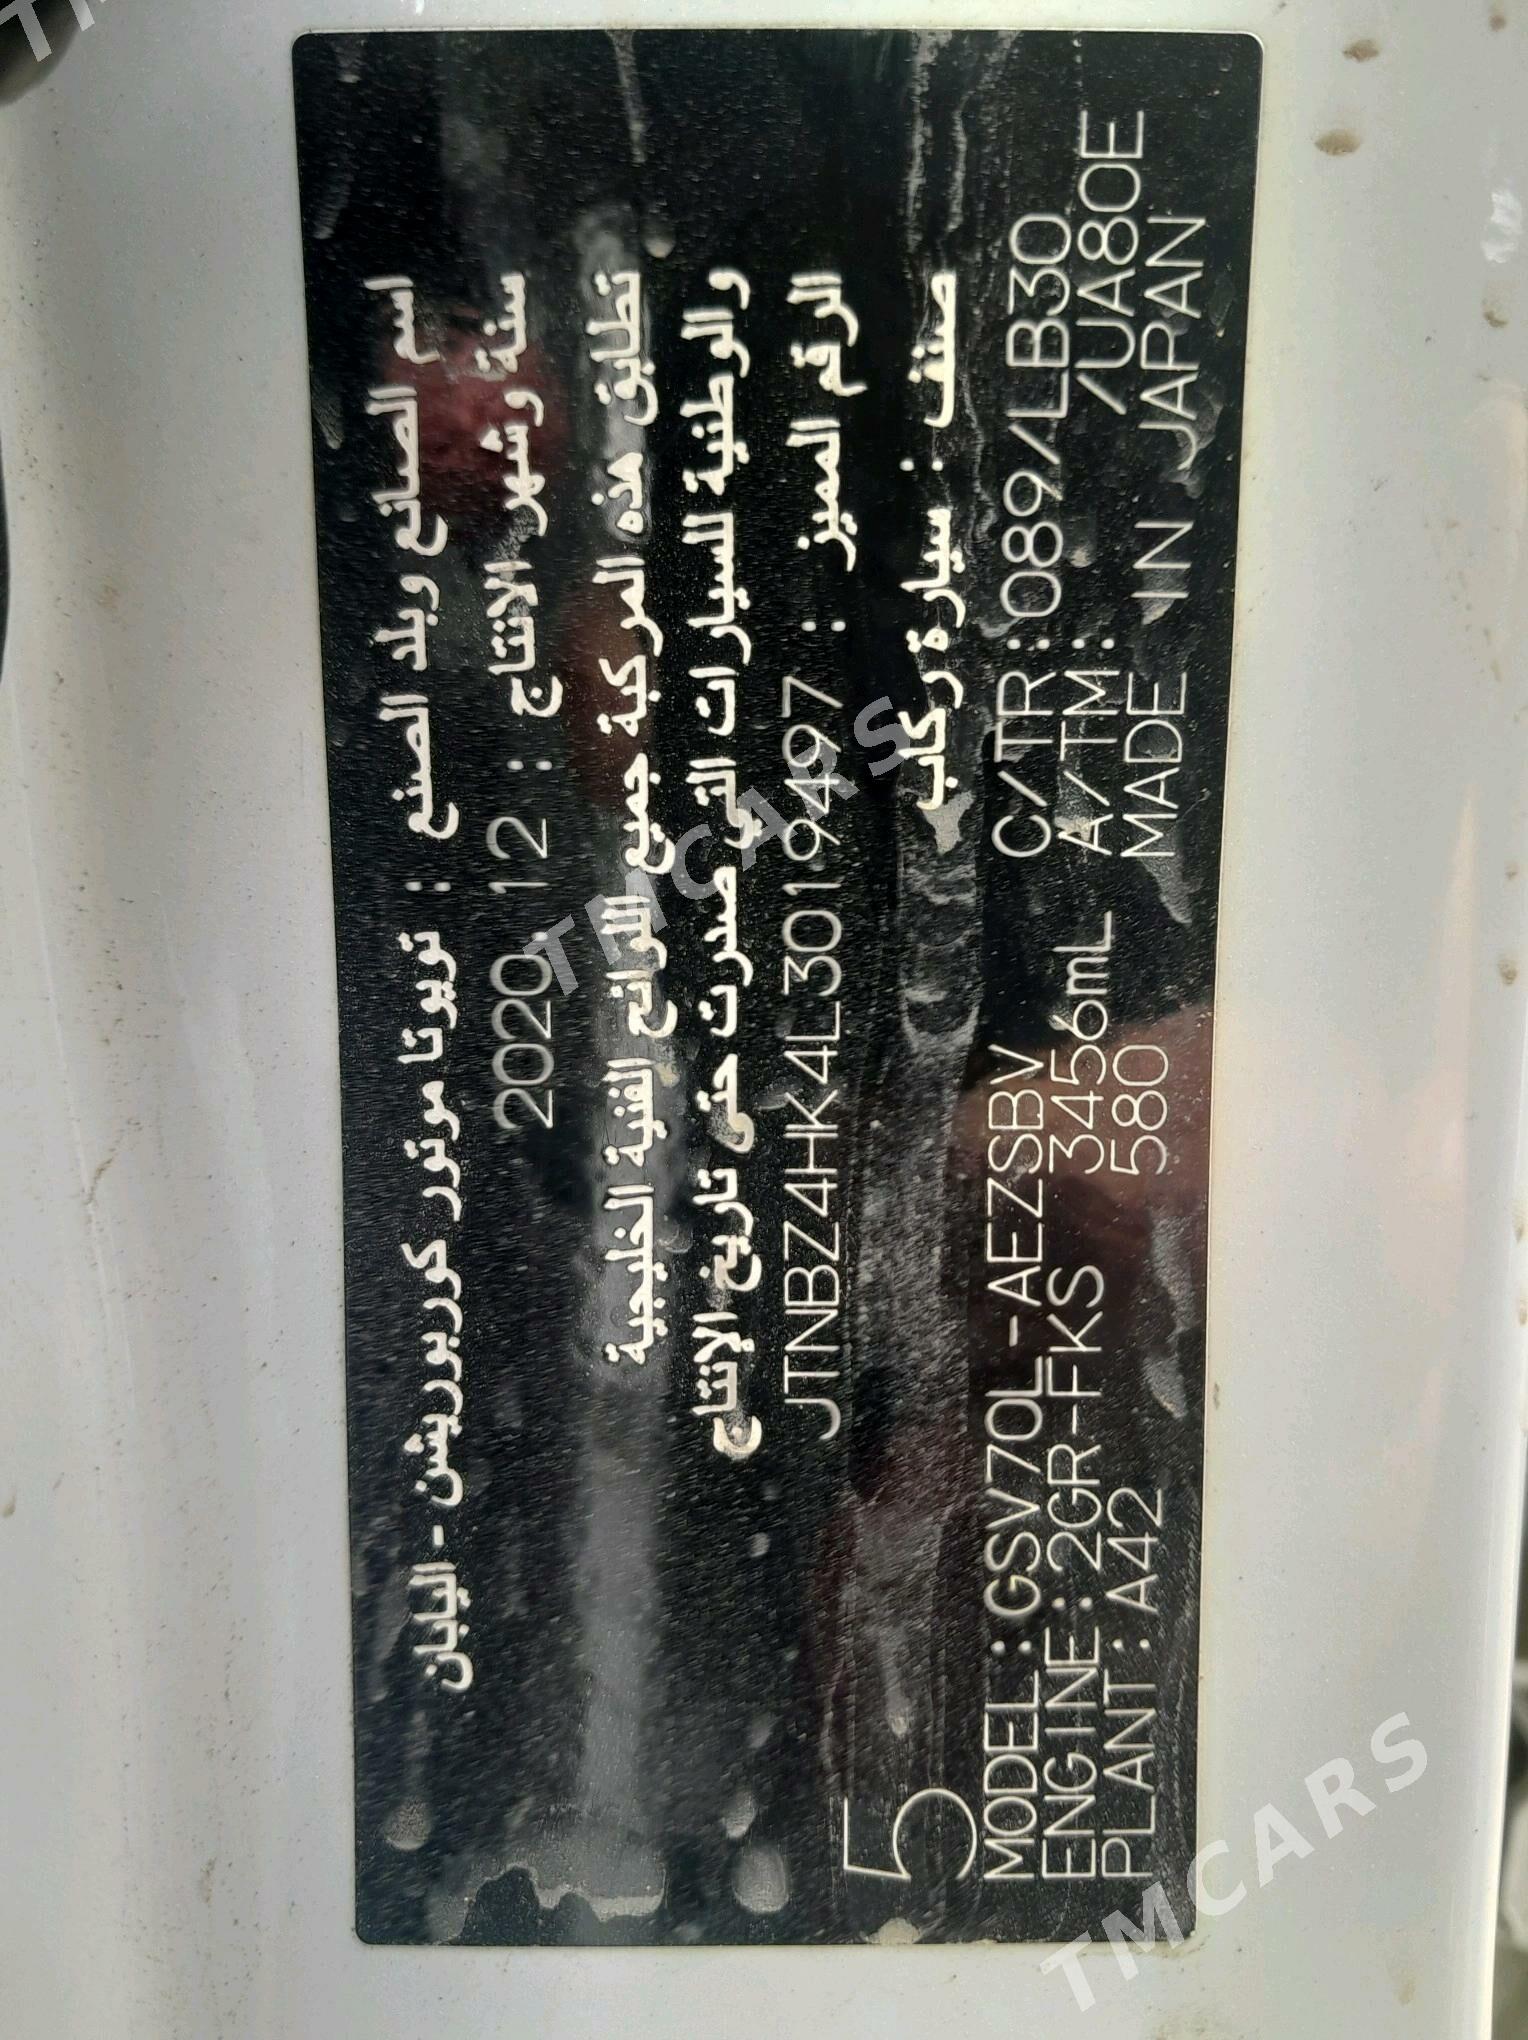 اسم الصانع وبلد الصنع : تويوتا موتور كوربوريشن - اليابان
سنة وشهر الانتاج : 2020. 12
تطابق هذه المركبة جميع اللوائح الفنية الخليجية
و الوطنية للسيارات التي صدرت حتى تاريخ الإنتاج
الرقم المميز : JTNBZ4HK4L3019497
صنف : سيارة ركاب
5
MODEL:GSV70L-AEZSBV C/TR:089/LB30
ENGINE:2GR-FKS 3456mL A/TM: /UA80E
PLANT:A42 580 MADE IN JAPAN
TMCARS
TMCARS